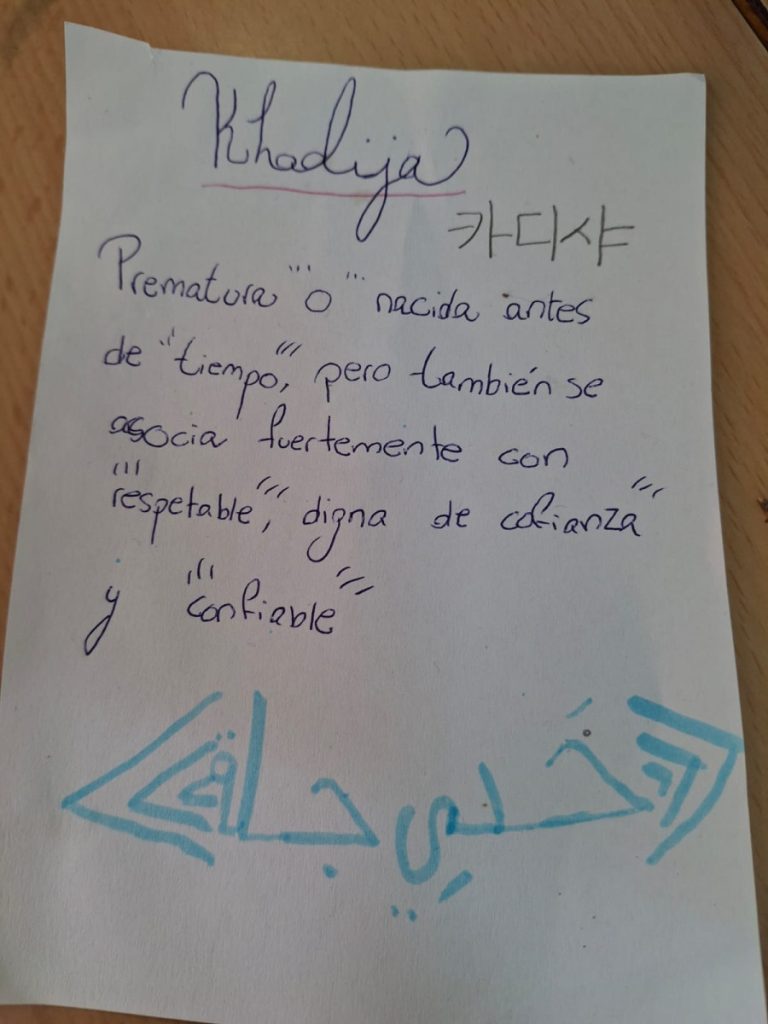 Khadija
카디샤
Prematura "o" nacida antes
de "tiempo", pero también se
asocia fuertemente con
"respetable", digna de cofianza"
y "confiable"